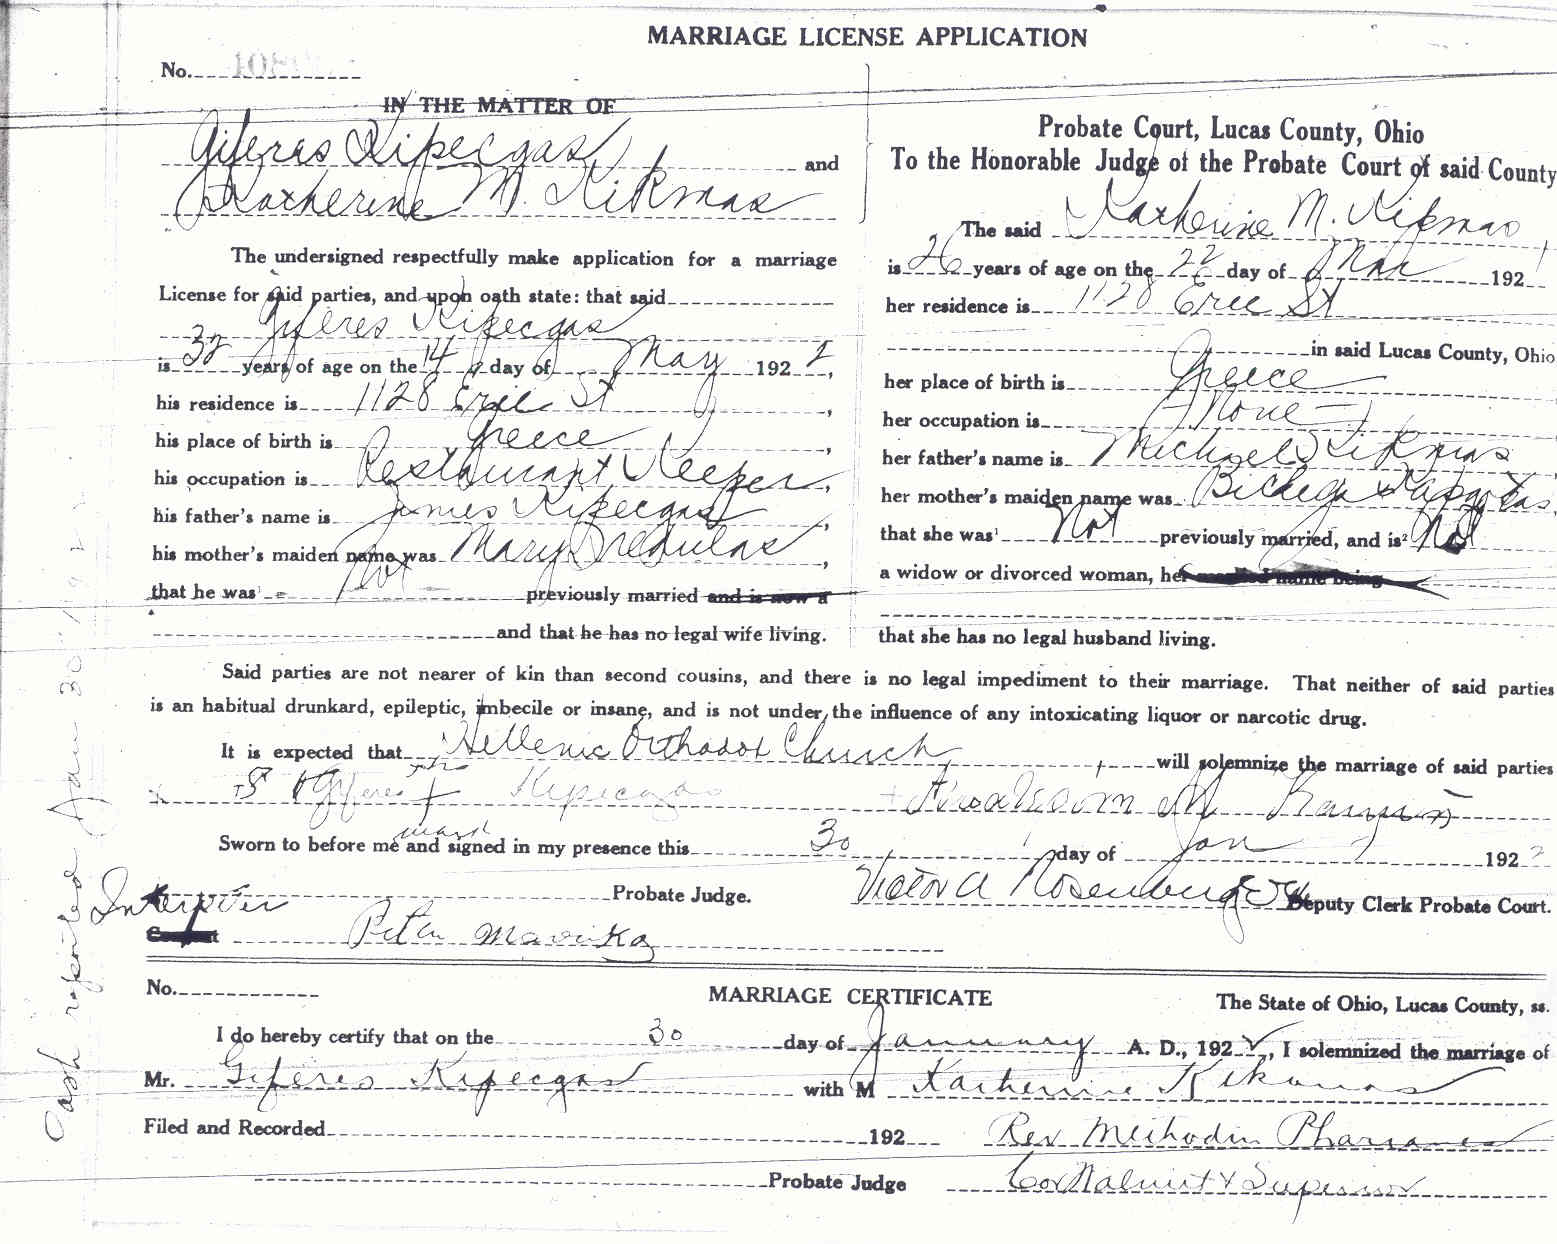 MARRIAGE LICENSE APPLICATION
No.
IN THE MATTER OF
Giferes Kipecgas
and
Katherine M. Kikmas
The undersigned respectfully make application for a marriage
License for said parties, and upon oath state: that said
Giferes Kipecgas
is 32 years of age on the 14 day of May 192 2,
his residence is 1128 Erie St,
his place of birth is Greece,
his occupation is Restaurant Keeper,
his father's name is James Kipecgas,
his mother's maiden name was Mary,
that he was¹ Not previously married and is now a
and that he has no legal wife living.
Probate Court, Lucas County, Ohio
To the Honorable Judge of the Probate Court of said County
The said Katherine M. Kikmas
is 26 years of age on the 22 day of Mar 192 1
her residence is 1128 Erie St
in said Lucas County, Ohio
her place of birth is Greece
her occupation is - None -
her father's name is Michael Kikmas
her mother's maiden name was
that she was¹ Not previously married, and is² Not
a widow or divorced woman, her married name being
that she has no legal husband living.
Said parties are not nearer of kin than second cousins, and there is no legal impediment to their marriage. That neither of said parties
is an habitual drunkard, epileptic, imbecile or insane, and is not under the influence of any intoxicating liquor or narcotic drug.
It is expected that Hellenic Orthodox Church will solemnize the marriage of said parties
x Giferes his + mark Kipecgas
Sworn to before me and signed in my presence this 30 day of Jan 192 2
Probate Judge. Victor A Rosenberg Deputy Clerk Probate Court.
Interpreter
Consent Peter
Cash reported Jan 30 1922
No.
MARRIAGE CERTIFICATE
The State of Ohio, Lucas County, ss.
I do hereby certify that on the 30 day of January A. D., 192 2, I solemnized the marriage of
Mr. Giferes Kipecgas with M Katherine Kikmas
Filed and Recorded 192 Rev Methodin
Probate Judge Cor Walnut & Superior